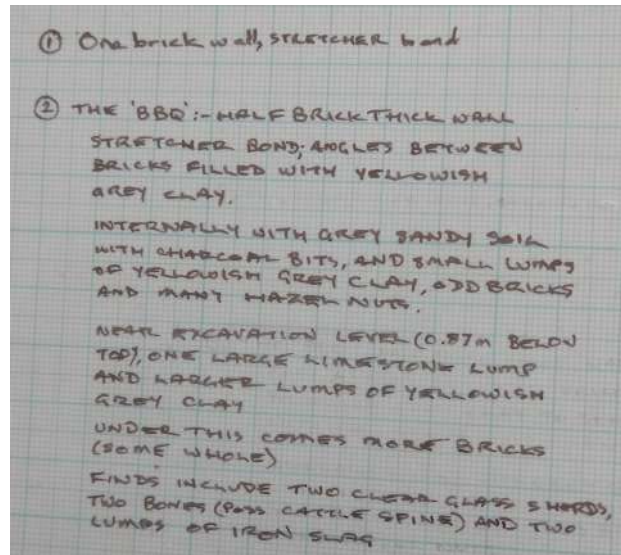 ① One brick wall, STRETCHER bond
② THE 'BBQ':- HALF BRICK THICK WALL
STRETCHER BOND; ANGLES BETWEEN
BRICKS FILLED WITH YELLOWISH
GREY CLAY.
INTERNALLY WITH GREY SANDY SOIL
WITH CHARCOAL BITS, AND SMALL LUMPS
OF YELLOWISH GREY CLAY, ODD BRICKS
AND MANY HAZEL NUTS.
NEAR EXCAVATION LEVEL (0.87m BELOW
TOP), ONE LARGE LIMESTONE LUMP
AND LARGER LUMPS OF YELLOWISH
GREY CLAY
UNDER THIS COMES MORE BRICKS
(SOME WHOLE)
FINDS INCLUDE TWO CLEAR GLASS SHERDS,
TWO BONES (POSS CATTLE SPINE) AND TWO
LUMPS OF IRON SLAG